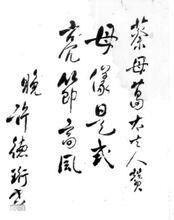 蔡母葛太夫人赞
母仪是式
亮节高风
晚 许德珩书